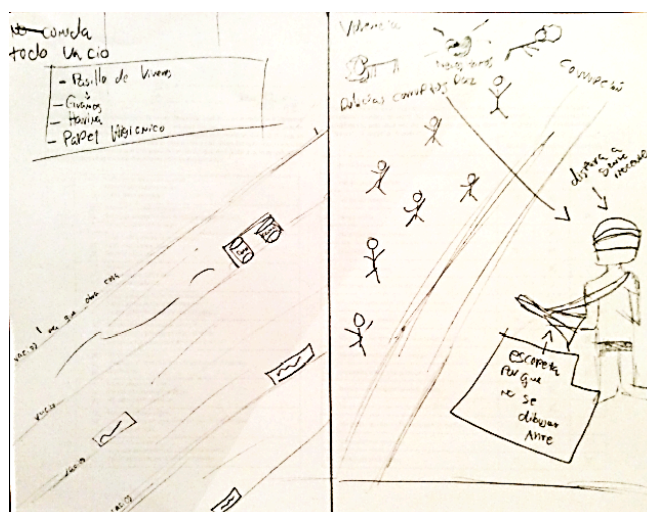 No comida
todo vacio
- Pasillo de viveres
- Granos
- Harina
- Papel higienico
vacio
vacio
vacio
Violencia
Policias corruptos
Corrupción
dispara a
gente
inocente
escopeta
Porque
no se
dibujar